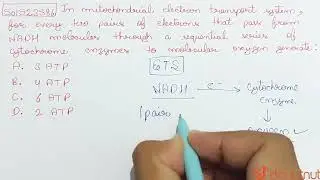 In mitochondrial electron transport system,
for every two pairs of electrons that pass from
NADH molecular through a sequential series of
cytochrome enzymes to molecular oxygen generate:
A. 3 ATP
B. 4 ATP
C. 6 ATP
D. 2 ATP
ETS
NADH e⁻ cytochrome
enzyme
1 pair